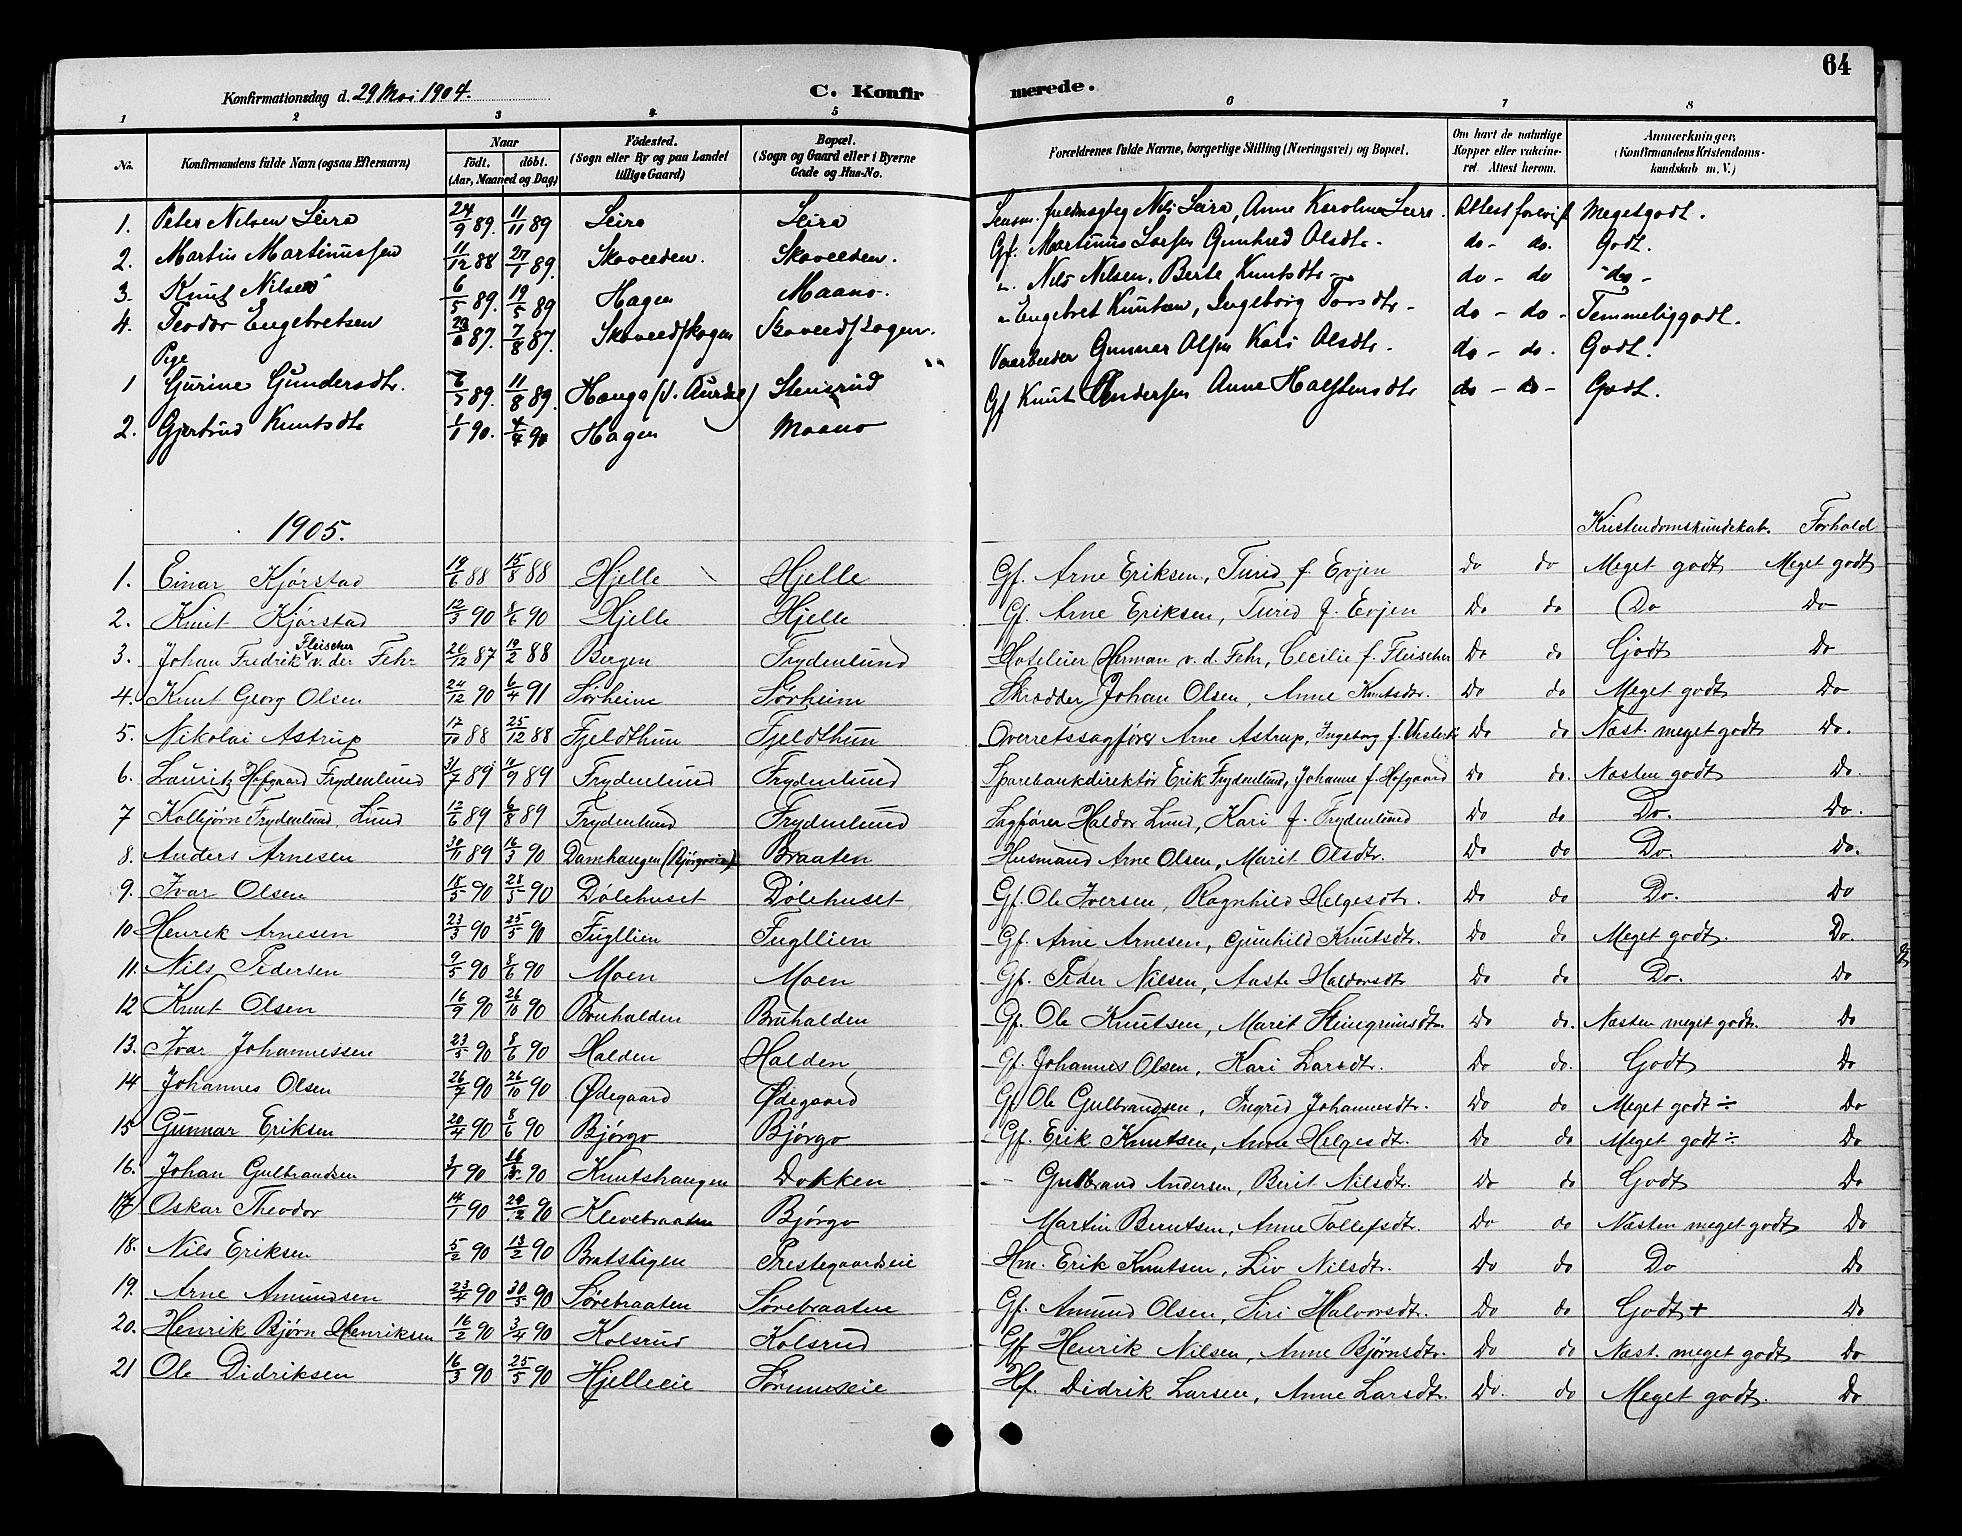 64
Konfirmationsdag d. 29 Mai 1904. C. Konfirmerede.
1 2 3 4 5 6 7 8
No. Konfirmandens fulde Navn (ogsaa Efternavn) Naar födt. döbt. (Aar, Maaned og Dag) Födested. (Sogn eller By og paa Landet tillige Gaard) Bopæl. (Sogn og Gaard eller i Byerne Gade og Hus-No. Forældrenes fulde Navne, borgerlige Stilling (Næringsvei) og Bopæl. Om havt de naturlige Kopper eller vakcineret. Attest herom. Anmærkninger, (Konfirmandens Kristendomskundskab m. V.)
1. Peter Nilsen Leira 24/9 89. 11/11 89 Leira Leira Nils Leira, Anne Karoline Leira. Attest forevist Megetgodt.
2. Martin Martinussen 11/12 88 27/1 89. Skaveeden. Skaveeden. Gf. Martinus Larsen Gunhild Olsdtr. do - do. Godt.
3. Knut Nilsen 6/5 89. 19/5 89 Hagen Maano. " Nils Nilsen, Berte Knutsdtr - do - do "do -
4. Teodor Engebretsen 23/6 87. 7/8 87. " Engebret Knutsen, Ingeborg Torsdtr - do - do - Temmeliggodt.
Pige
1 Gurine Gundersdtr. 7/5 89. 11/8 89. Hauga (S. Aurdal) Stensrud Gunnar Olsen Kari Olsdtr. do - do. Godt.
2. Gjertrud Knutsdtr 1/1 90. 4/4 90 Hagen Maano Gf Knut Andersen Anne Halstensdtr do - do - Godt.
1905. Kristendomskundskab. Forhold
1. Einar Kjørstad 19/6 88 15/8 88 Hjelle Hjelle Gf. Arne Eriksen, Turid f. Evjen do do Meget godt Meget godt
2. Knut Kjørstad 12/3 90 8/6 90 Hjelle Hjelle Gf. Arne Eriksen, Turid f. Evjen Do do Do Do
3. Johan Fredrik Fleischer v. der Fehr 20/12 87 19/2 88 Bergen Frydenlund Hoteleier Herman v. d. Fehr, Cecilie f. Fleischer Do do Godt Do
4. Knut Georg Olsen 24/12 90 6/4 91 Sørheim Sørheim Skrædder Johan Olsen, Anne Knutsdtr. Do do Meget godt Do
5. Nikolai Astrup 17/10 88 25/12 88 Fjeldthun Fjeldthun Overretssagfører Arne Astrup, Ingeborg f. Do do Næst. meget godt Do.
6. Lauritz Hofgaard Frydenlund 31/7 89 /9 89 Frydenlund Frydenlund Sparebankdirektør Erik Frydenlund, Johanne f. Hofgaard Do do. Næsten godt Do.
7 Kolbjørn Frydenlund Lund 12/6 89 6/8 89 Frydenlund Frydenlund Sagfører Haldor Lund, Kari f. Frydenlund Do do Do. Do.
8. Anders Arnesen 30/11 89 16/3 90 Damhaugen Braaten Husmand Arne Olsen, Marit Olsdtr. Do do Do. Do.
9. Ivar Olsen 15/5 90 28/5 90 Dølehuset Dølehuset Gf. Ole Iversen, Ragnhild Helgesdtr. Do do Do. Do
10 Henrik Arnesen 23/3 90 25/5 90 Fugllien Fugllien Gf. Arne Arnesen, Gunhild Knutsdtr. Do do Meget godt. Do.
11. Nils Pedersen 9/5 90 8/6 90 Moen Moen Gf. Peder Nilsen, Aaste Haldorsdtr Do do Do. Do
12 Knut Olsen 16/9 90 26/10 90 Bruhalden Bruhalden Gf. Ole Knutsen, Marit Steingrimsdtr. Do do. Næsten meget godt. Do
13. Ivar Johannessen 23/5 90 8/6 90 Halden Halden Gf. Johannes Olsen, Kari Larsdtr. Do do. Godt Do
14 Johannes Olsen 26/7 90 26/10 90 Ødegaard Ødegaard Gf Ole Gulbrandsen, Ingrid Johannesdtr. Do do Meget godt ÷ Do
15 Gunnar Eriksen 20/4 90 8/6 90 Bjørgo Bjørgo Gf. Erik Knutsen, Anne Helgesdtr. Do do Meget godt ÷ Do
16. Johan Gulbrandsen 3/1 90 16/3 90 Knutshaugen Dokken - Gulbrand Andersen, Berit Nilsdtr. Do do Godt Do
17 Oskar Theodor 14/1 90 20/2 90 Klevebraaten Bjørgo Martin Berntsen, Anne Tollefsdtr. Do do Næsten meget godt Do
18. Nils Eriksen 5/2 90 13/2 90 Bratstigen Prestegaardseie Hm. Erik Knutsen, Liv Nilsdtr. Do do Do Do
19. Arne Amundsen 23/4 90 30/5 90 Sørebraaten Sørebraaten Gf. Amund Olsen, Siri Halvorsdtr. Do do Godt + Do
20. Henrik Bjørn Henriksen 16/2 90 3/4 90 Kolsrud Kolsrud Gf Henrik Nilsen, Anne Bjørnsdtr. Do do Næst. meget godt Do
21 Ole Didriksen 16/3 90 25/5 90 Hjelleeie Hf. Didrik Larsen, Anne Larsdtr. Do. do Meget godt. Do